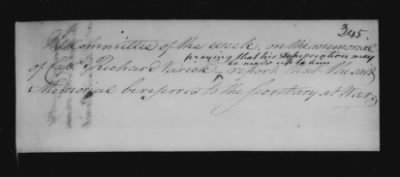 345.
The Committee of the week, on the memorial
praying that his depreciation may
be made up to him
of Capt Richard Varick, report that the said
Memorial be referred to the Secretary at War